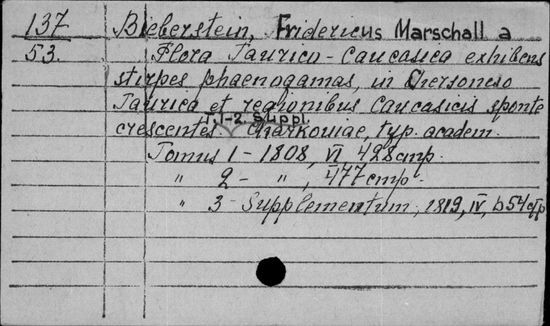 137 Bieberstein, Fridericus Marschall a
53. Flora Taurico-Caucasica exhibens
stirpes phaenogamas, in Chersoneso
Taurica et regionibus Caucasicis sponte
T.1-2. Suppl.
crescentes Charkoviae, typ. academ.
Tomus 1 - 1808, VI 428 стр.
" 2 - " , 477 стр.
" 3 - Supplementum, 1819, IV, 654 стр